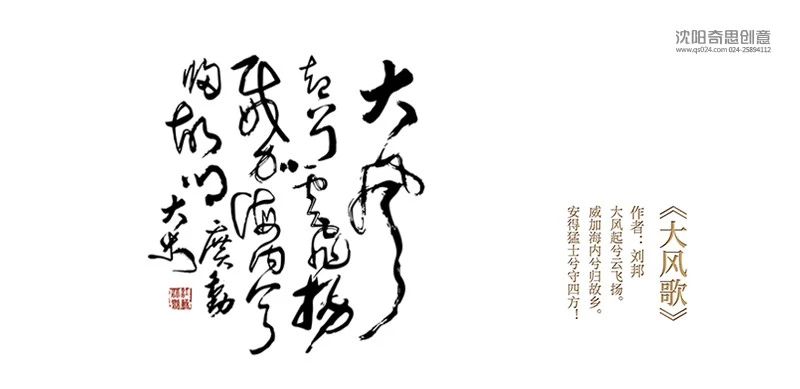 沈阳奇思创意
www.qs024.com 024-25894112
《大风歌》
作者：刘邦
大风起兮云飞扬。
威加海内兮归故乡。
安得猛士兮守四方！
大風
起兮雲飛揚
威加海内兮
歸故鄉